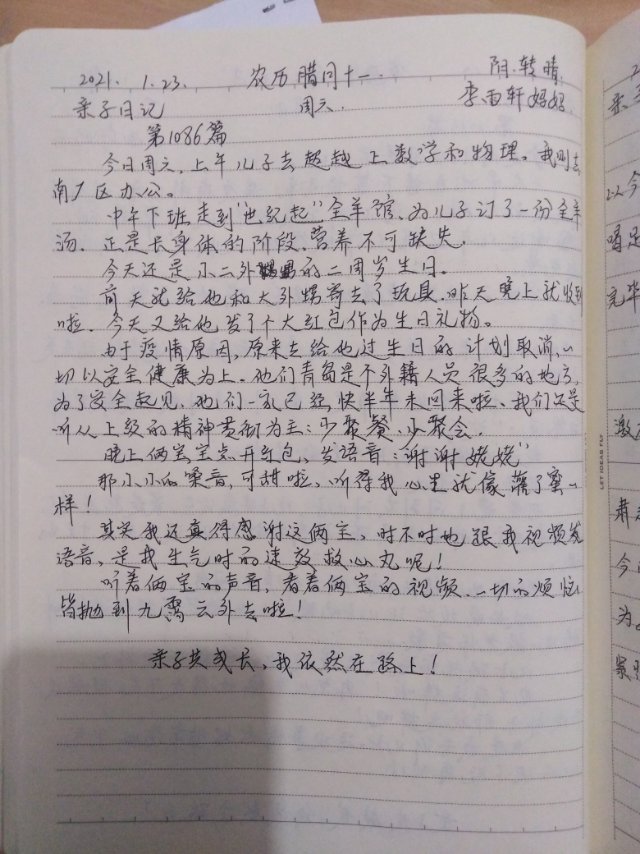 2021. 1.23. 农历腊月十一. 阴.转晴.
亲子日记 周六. 李雨轩妈妈.
第1086篇
今日周六,上午儿子去超越上数学和物理。我则去
南厂区办公。
中午下班走到"世纪起"全羊馆,为儿子订了一份全羊
汤.正是长身体的阶段.营养不可缺失.
今天还是小二外甥的二周岁生日。
前天就给他和大外甥寄去了玩具.昨天晚上就收到
啦.今天又给他发了个大红包作为生日礼物。
由于疫情原因,原来去给他过生日的计划取消,一
切以安全健康为上。他们青岛是个外籍人员很多的地方,
为了安全起见,他们一家已经快半年未回来啦。我们只是
听从上级的精神贯彻为主:少聚餐.少聚会.
晚上俩宝宝点开红包,发语音:"谢谢姥姥"
那小小的嗓音,可甜啦,听得我心里就像灌了蜜一
样!
其实我还真得感谢这俩主,时不时地跟我视频发
语音,是我生气时的速效救心丸呢!
听着俩宝的声音,看着俩宝的视频.一切的烦恼
皆抛到九霄云外去啦!
亲子共成长,我依然在路上!
LET IDEAS FLY